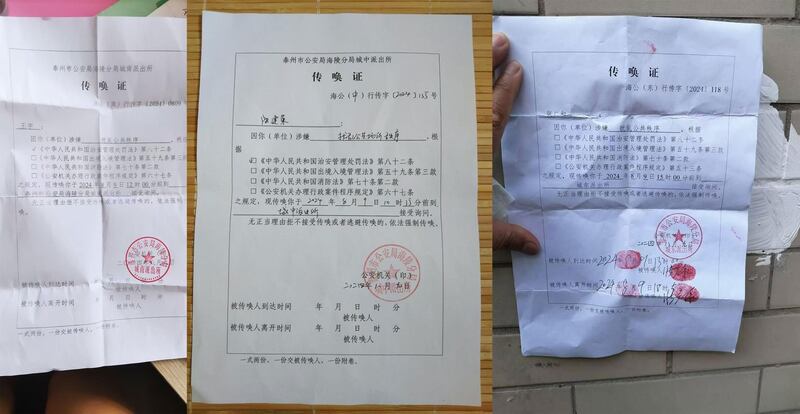 泰州市公安局海陵分局城南派出所
传唤证
因你(单位)涉嫌
《中华人民共和国治安管理处罚法》第八十二条
《中华人民共和国出境入境管理法》第五十九条第二款
《中华人民共和国消防法》第七十条第二款
《公安机关办理行政案件程序规定》第六十七条
之规定,现传唤你于2024年8月9日12时00分前到
泰州市公安局海陵分局城南派出所接受询问。
无正当理由拒不接受传唤或者逃避传唤的,依法强制传唤。
泰州市公安局海陵分局
城南派出所
被传唤人到达时间 年 月 日 时 分
被传唤人
被传唤人离开时间 年 月 日 时 分
被传唤人
一式两份,一份交被传唤人,一份附卷。
泰州市公安局海陵分局城中派出所
传唤证
海公(中)行传字〔2024〕135号
因你(单位)涉嫌 扰乱公共场所秩序,根
据
☑《中华人民共和国治安管理处罚法》第八十二条
□《中华人民共和国出境入境管理法》第五十九条第二款
□《中华人民共和国消防法》第七十条第二款
□《公安机关办理行政案件程序规定》第六十七条
之规定,现传唤你于2024年8月9日
城中派出所 接受询问。
无正当理由拒不接受传唤或者逃避传唤的,依法强制传唤。
公安机关(印)
被传唤人到达时间 年 月 日 时 分
被传唤人
被传唤人离开时间 年 月 日 时 分
被传唤人
一式两份,一份交被传唤人,一份附卷。
传唤证
海公(东)行传字〔2024〕118号
因你(单位)涉嫌 扰乱公共秩序,根据
《中华人民共和国治安管理处罚法》第八十二条
《中华人民共和国出境入境管理法》第五十九条第二款
《中华人民共和国消防法》第七十条第二款
《公安机关办理行政案件程序规定》第五十三条
之规定,现传唤你于2024年8月9日
城东派出所 接受询问。
无正当理由拒不接受传唤或者逃避传唤的,依法强制传唤。
被传唤人到达时间2024年
被传唤人
被传唤人离开时间2024年
被传唤人
一式两份,一份交被传唤人,一份附卷。